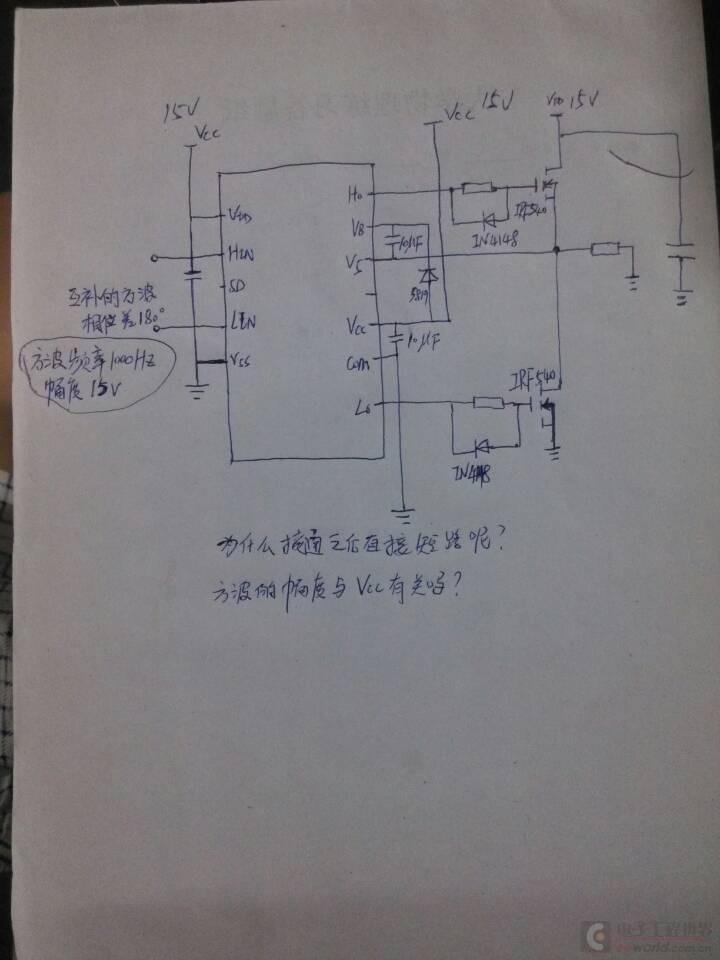 15V
Vcc
Vcc 15V
VDD 15V
VDD
HIN
SD
LIN
VSS
Ho
VB
VS
Vcc
Com
Lo
10μF
5819
10μF
IN4148
IRF540
IRF540
IN4148
互补的方波
相位差180°
方波频率1000Hz
幅度 15V
为什么接通之后直接短路呢?
方波的幅度与Vcc有关吗?
电子工程世界
eeworld.com.cn